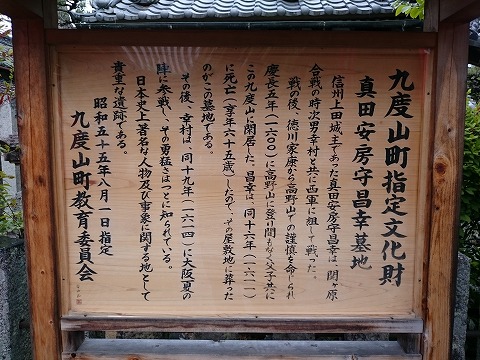 九度山町指定文化財
真田安房守昌幸墓地
信州上田城主であった真田安房守昌幸は、関ヶ原
合戦の時次男幸村と共に西軍に組して戦った。
戦の後、徳川家康から高野山での謹慎を命じられ
慶長五年（一六〇〇）に高野山に登り間もなく父子共に
この九度山に閑居した。昌幸は、同十六年（一六一一）
に死亡（享年六十五歳）したので、その屋敷地に葬った
のがこの墓地である。
その後、幸村は、同十九年（一六一四）に大阪夏の
陣に参戦し、その勇猛さはつとに知られている。
日本史上著名な人物及び事象に関する地として
貴重な遺跡である。
昭和五十五年八月一日指定
九度山町教育委員会